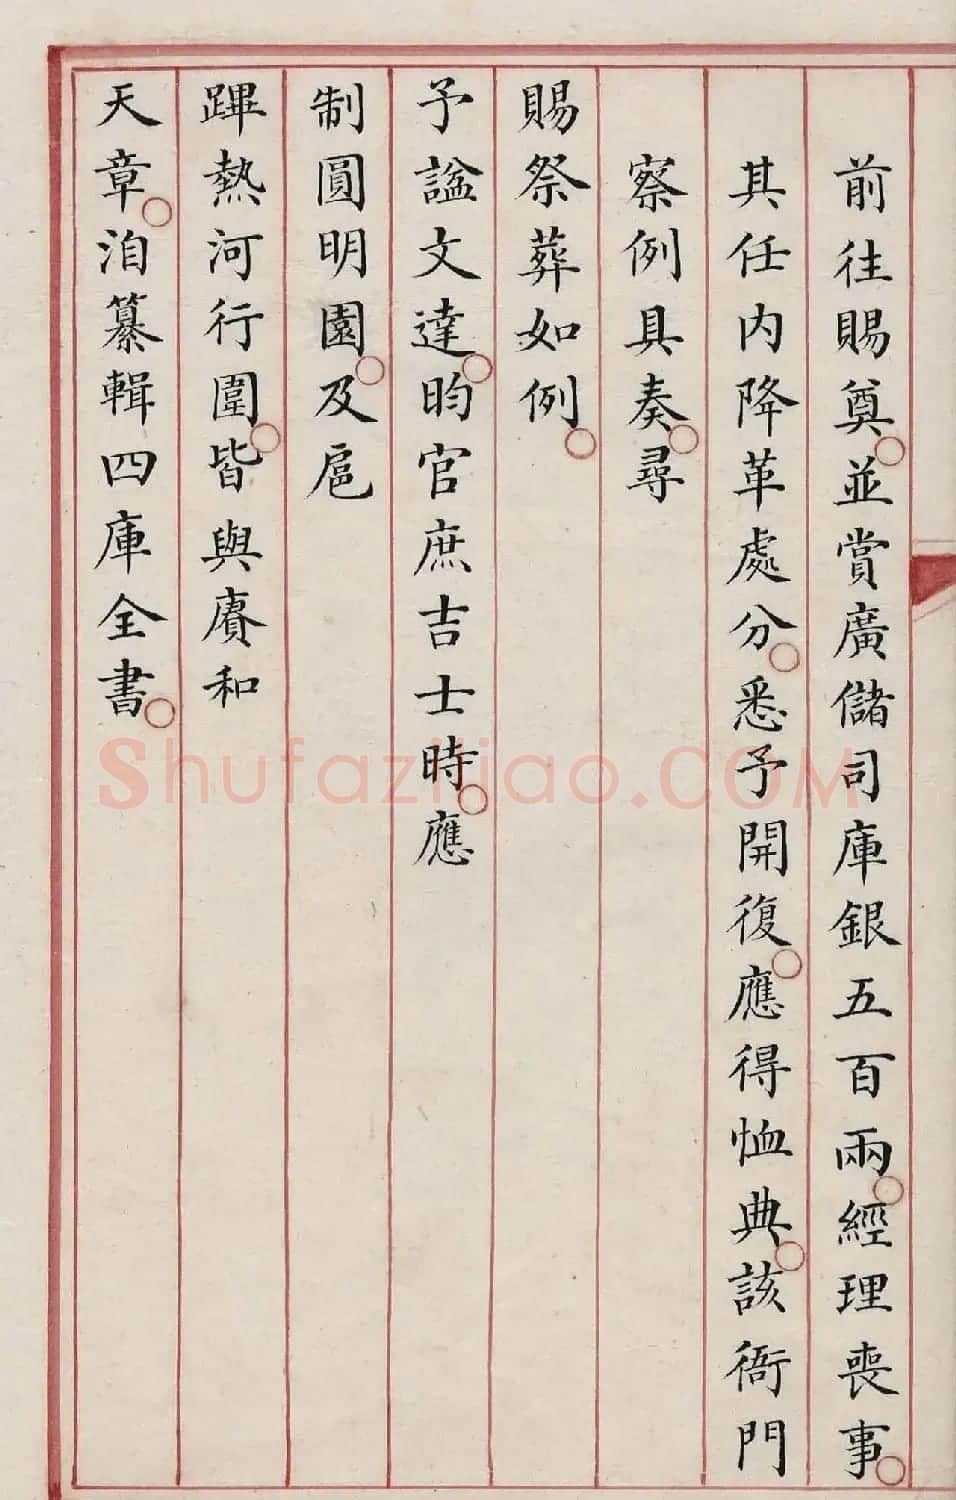 前往賜奠並賞廣儲司庫銀五百兩經理喪事
其任內降革處分悉予開復應得恤典該衙門
察例具奏尋
賜祭葬如例
予諡文達昀官庶吉士時應
制圓明園及扈
蹕熱河行圍皆與賡和
天章洎纂輯四庫全書
Shufaziliao.COM